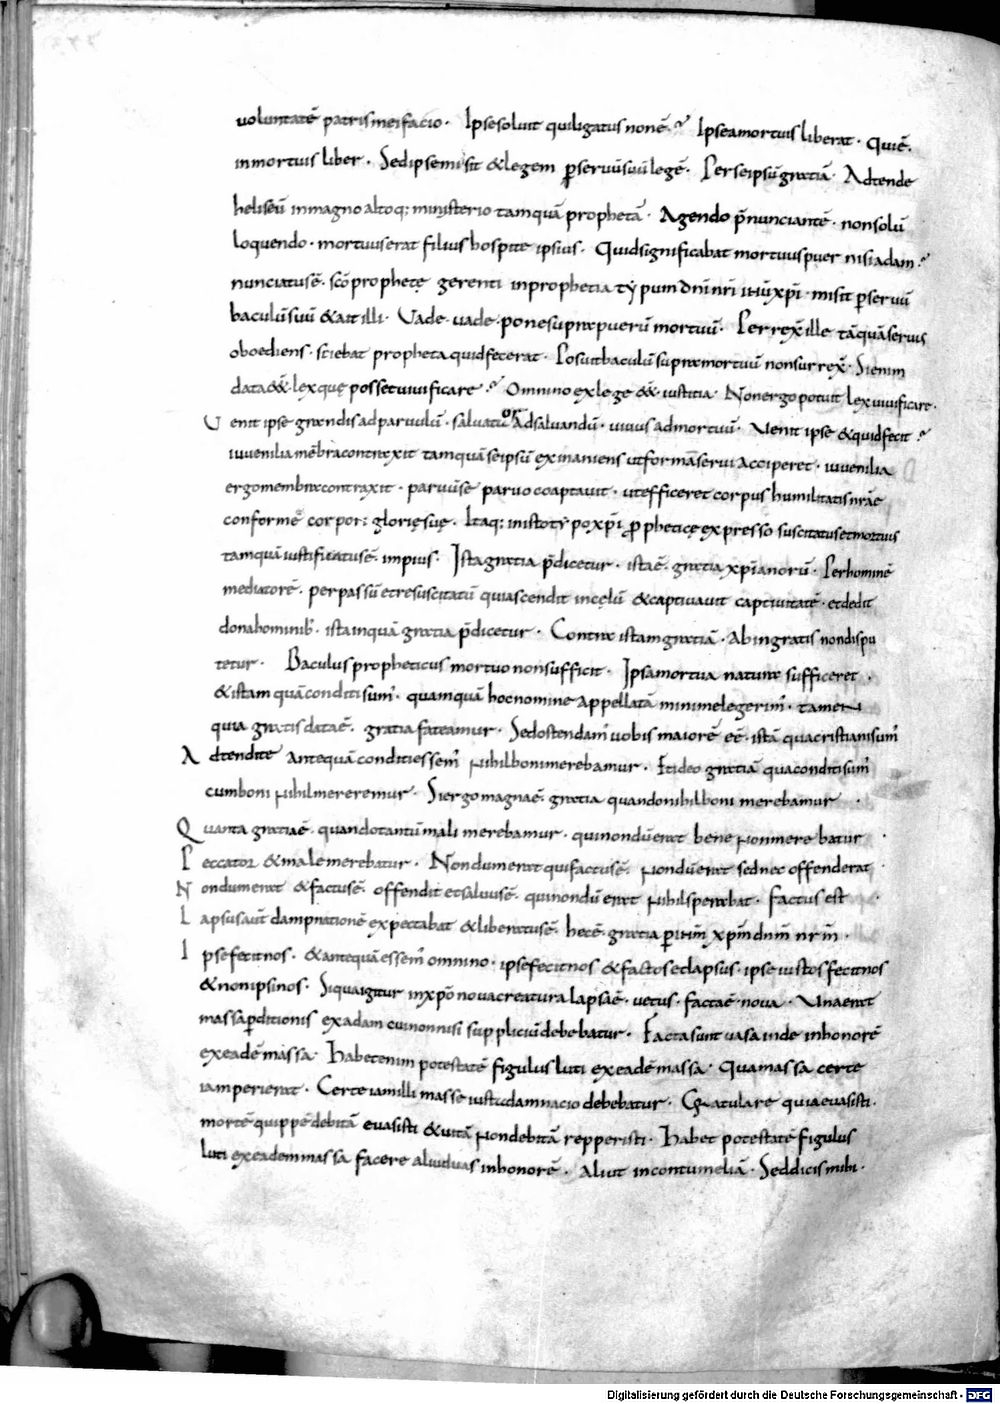 uoluntatē patris mei facio · Ipse soluit qui ligatus non ē · Ipse a mortuis liberat · Qui ē ·
in mortuis liber · Sed ipse misit & legem p̱ seruū suū legē · Per se ipsū gratiā · Adtende
heliseū in magno altoq; ministerio tamquā prophetā · Agendo p̄nunciantē · non solū
loquendo · mortuus erat filius hospite ipsius · Quid significabat mortuus puer nisi adam ·
nunciatus ē · sc̄o prophetę gerenti in prophetia typum dn̄i nr̄i ihū xp̄i · misit p̱ seruū
baculū suū & ait illi · Uade · uade · pone supra puerū mortuū · Perrex̄ ille tāquā seruus
oboediens · sciebat propheta quid fecerat · Posuit baculū supra mortuū non surrex̄ · Si enim
data ēē · lex quę posset uiuificare · Omnino ex lege ēē · iustitia · Non ergo potuit lex uiuificare ·
Uenit ipse grandis ad paruulū · saluator Ad saluandū · uiuus ad mortuū · Uenit ipse & quid fecit ·
iuuenilia mēbra contraxit tamquā se ipsū exinaniens ut formā serui acciperet · iuuenilia
ergo membra contraxit · paruū se paruo coaptauit · ut efficeret corpus humilitatis nr̄ae
conformē corpori glorię suę · Itaq; in isto typo xp̄i p̱pheticę expresso suscitatus et mortuus
tamquā iustificatus ē · impius · Ista gratia p̄dicetur · ista ē · gratia xp̄ianorū · Per hominē
mediatorē · per passū et resuscitatū qui ascendit in cęlū & captiuauit captiuitatē · et dedit
dona hominib; · ista inquā gratia p̄dicetur · Contra istam gratiā · Ab ingratis non dispu
tetur · Baculus propheticus mortuo non sufficit · Ipsa mortua natura sufficeret ·
& istam quā conditi sum̄ · quamquā hoc nomine appellatā minime legerim̄ · tamen
quia gratis data ē · gratia fateamur · Sed ostendam̄ uobis maiorē eē · istā qua cristiani sum̄
Adtendite antequā conditi essem̄ nihil boni merebamur · Et ideo gratiā qua conditi sum̄
cum boni nihil mereremur · Si ergo magna ē · gratia quando nihil boni merebamur ·
Quanta gratia ē · quando tantū mali merebamur · qui nondū erat bene non merebatur ·
Peccator & male merebatur · Nondum erat qui factus ē · nondū erat sed nec offenderat ·
Nondum erat & factus ē · offendit et saluus ē · qui nondū erat nihil sperabat · factus est ·
Lapsus aut̄ dampnationē expectabat & liberatus ē · hec ē · gratia p̱ ihm̄ xpm̄ dnm̄ nrm̄ ·
Ipse fecit nos · & antequā essem̄ omnino · ipse fecit nos & factos & lapsus · ipse iustos fecit nos
& non ipsi nos · Si qua igitur in xp̄o noua creatura lapsa ē · uetus · facta ē · noua · Una erat
massa p̱ditionis ex adam cui non nisi suppliciū debebatur · Facta sunt uasa inde in honorē
ex eadē massa · Habet enim potestatē figulus luti ex eadē massa · Qua massa certe
iam perierat · Certe iam illi masse iusta damnacio debebatur · Gratulare quia euasisti ·
mortē quippē debitā euasisti & uitā non debitā repperisti · Habet potestatē figulus
luti ex eadem massa facere aliud uas in honorē · Aliut in contumeliā · Sed dicis mihi ·
Digitalisierung gefördert durch die Deutsche Forschungsgemeinschaft · DFG